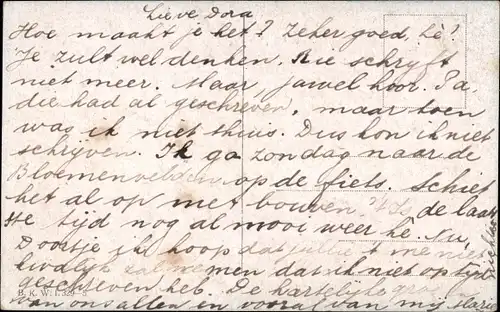 Lieve Dora
Hoe maakt je het? Zeker goed, hè!
Je zult wel denken, Rie schryft
niet meer. Maar, jawel hoor. Pa
die had al geschreven, maar toen
was ik niet thuis. Dus kon ik niet
schrijven. Ik ga zondag naar de
Bloemenvelden op de fiets. Schiet
het al op met bouwen. 't Is de laat
ste tijd nog al mooi weer hè. Nu,
Doortje ik hoop dat jullie t me niet
kwalijk zal nemen dat ik niet op tijd
geschreven heb. De hartelijke
van ons allen en vooral van mij Marie
B. K. W. I. 329